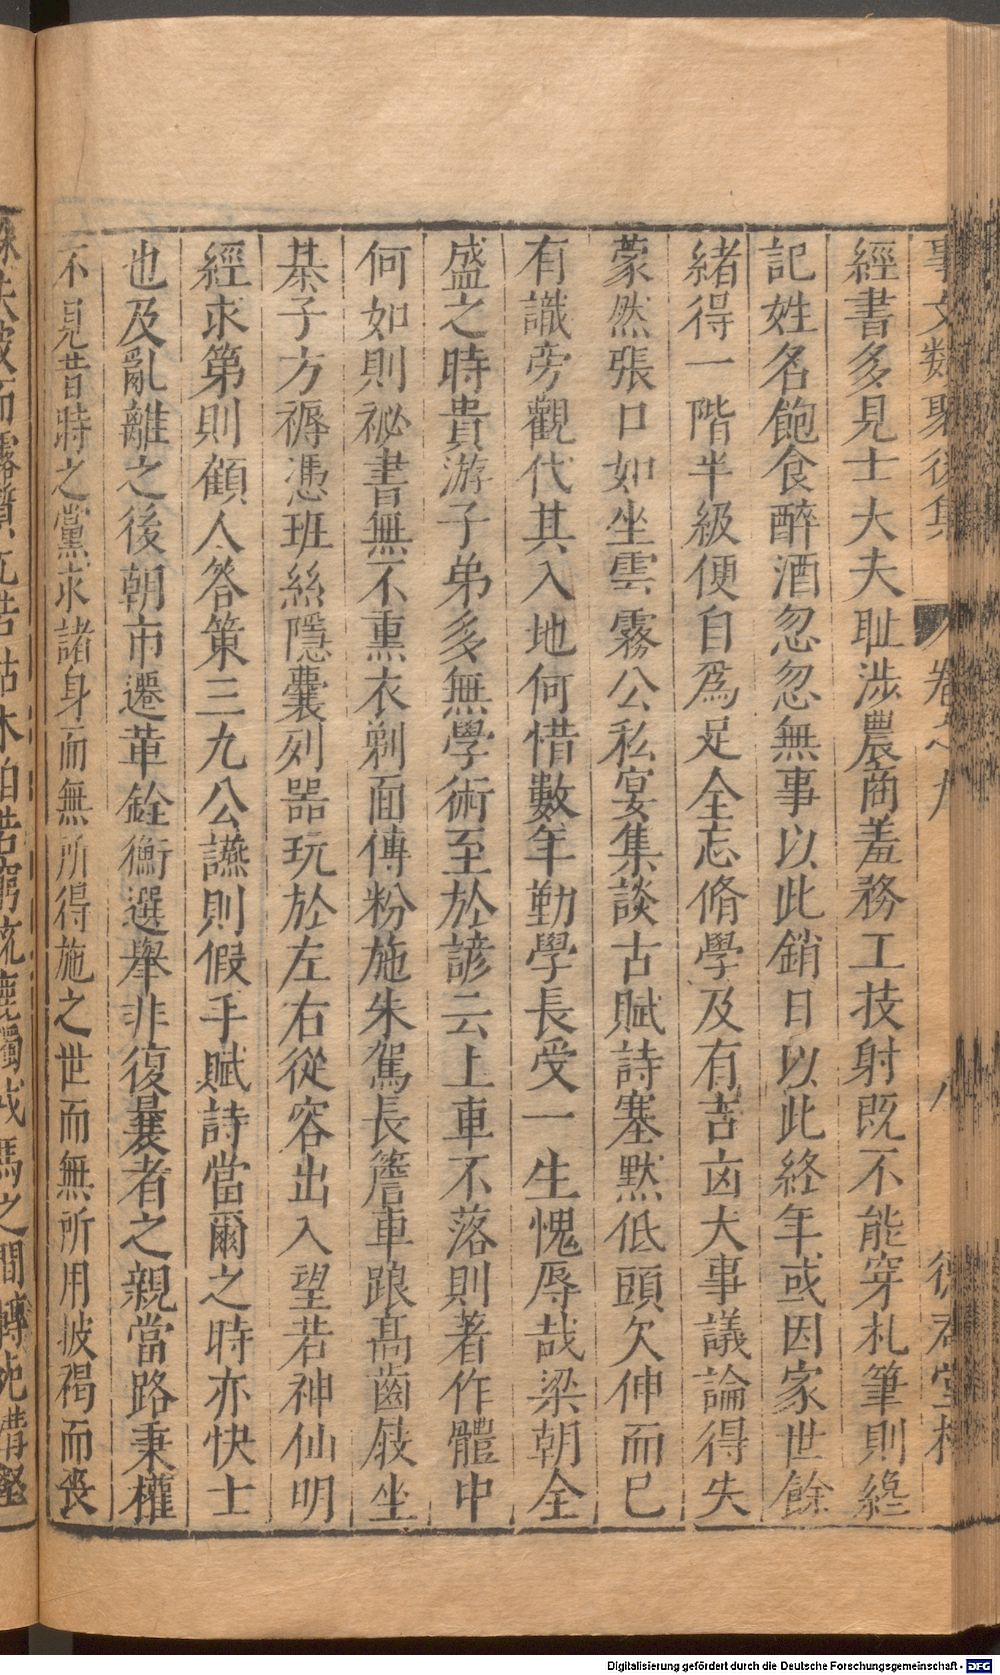 事文類聚後集 卷之九 八 德壽堂梓
經書多見士大夫耻涉農商羞務工技射既不能穿札筆則纔
記姓名飽食醉酒忽忽無事以此銷日以此終年或因家世餘
緒得一階半級便自爲足全忘脩學及有吉凶大事議論得失
蒙然張口如坐雲霧公私宴集談古賦詩塞默低頭欠伸而已
有識旁觀代其入地何惜數年勤學長受一生愧辱哉梁朝全
盛之時貴游子弟多無學術至於諺云上車不落則著作體中
何如則祕書無不熏衣剃面傅粉施朱駕長簷車踉高齒屐坐
棊子方褥憑班絲隱囊列器玩於左右從容出入望若神仙明
經求第則顧人答策三九公讌則假手賦詩當爾之時亦快士
也及亂離之後朝市遷革銓衡選舉非復曩者之親當路秉權
不見昔時之黨求諸身而無所得施之世而無所用披褐而喪
珠失皮而露質兀若枯木泊若窮流鹿獨戎馬之間轉死溝壑
Digitalisierung gefördert durch die Deutsche Forschungsgemeinschaft - DFG